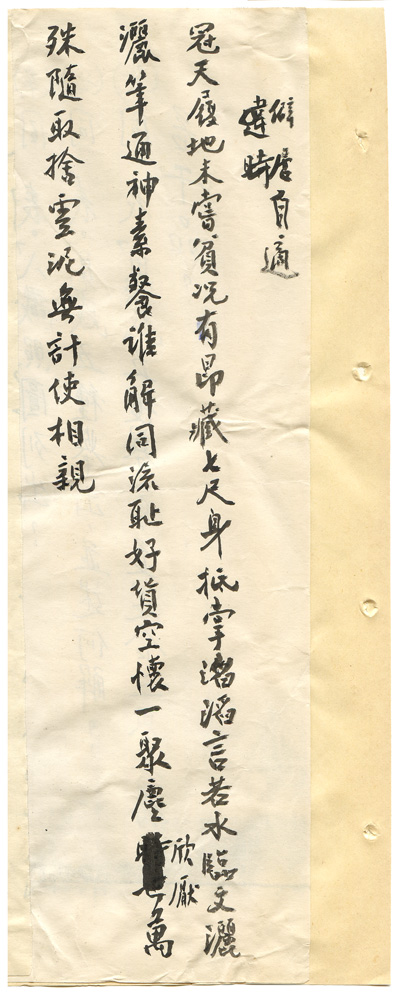 僻居自適
違時
冠天履地未嘗貧況有昂藏七尺身抵掌滔滔言若水臨文灑
灑筆通神素餐誰解同流恥好貨空懷一聚塵欣厭萬
殊隨取捨雲泥無計使相親